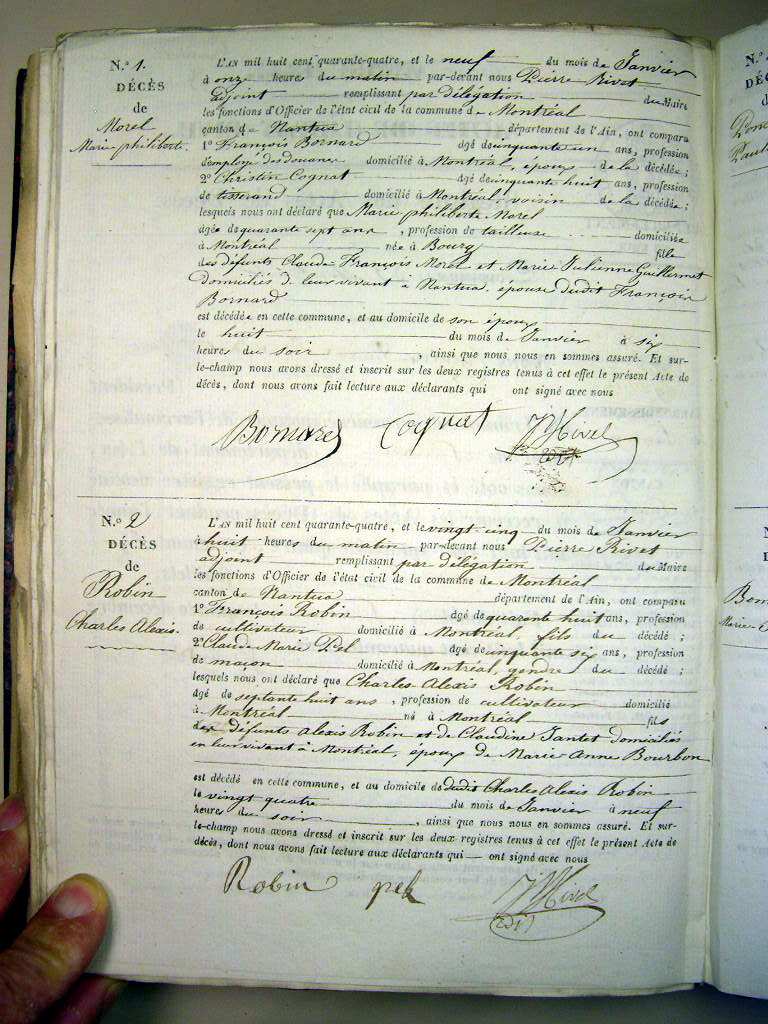 N.º 1.
DÉCÈS
de
Morel
Marie philiberte.
L'AN mil huit cent quarante-quatre, et le neuf du mois de Janvier
à onze heures du matin par-devant nous Pierre Rivet
adjoint remplissant par délégation du Maire
les fonctions d'Officier de l'état civil de la commune de Montréal
canton de Nantua département de l'Ain, ont comparu
1º François Bornard âgé de cinquante un ans, profession
d'employé des douanes domicilié à Montréal, époux de la décédée ;
2º Christin Cognat âgé de cinquante huit ans, profession
de tisserand domicilié à Montréal, voisin de la décédée ;
lesquels nous ont déclaré que Marie philiberte Morel
âgée de quarante sept ans, profession de tailleuse domiciliée
à Montréal née à Bourg fille
des défunts Claude-François Morel et Marie Julienne Guillermet
domiciliés de leur vivant à Nantua, épouse dudit François
Bornard
est décédée en cette commune, et au domicile de son époux
le huit du mois de Janvier à six
heures du soir, ainsi que nous nous en sommes assuré. Et sur-
le-champ nous avons dressé et inscrit sur les deux registres tenus à cet effet le présent Acte de
décès, dont nous avons fait lecture aux déclarants qui ont signé avec nous
Bornard Cognat Rivet
N.º 2
DÉCÈS
de
Robin
Charles Alexis.
L'AN mil huit cent quarante-quatre, et le vingt-cinq du mois de Janvier
huit heures du matin par-devant nous Pierre Rivet
adjoint remplissant par délégation du Maire
les fonctions d'Officier de l'état civil de la commune de Montréal
canton de Nantua département de l'Ain, ont comparu
1º François Robin âgé de quarante huit ans, profession
de cultivateur domicilié à Montréal, fils du décédé ;
2º Claude-Marie Pel âgé de cinquante six ans, profession
de maçon domicilié à Montréal, gendre du décédé ;
lesquels nous ont déclaré que Charles-Alexis Robin
âgé de septante huit ans, profession de cultivateur domicilié
à Montréal né à Montréal fils
des défunts Alexis Robin et de Claudine Jantet domiciliés
en leur vivant à Montréal, époux de Marie-Anne Bourbon
est décédé en cette commune, et au domicile dudit Charles Alexis Robin
le vingt quatre du mois de Janvier à neuf
heures du soir, ainsi que nous nous en sommes assuré. Et sur-
le-champ nous avons dressé et inscrit sur les deux registres tenus à cet effet le présent Acte de
décès, dont nous avons fait lecture aux déclarants qui ont signé avec nous
Robin pel Rivet